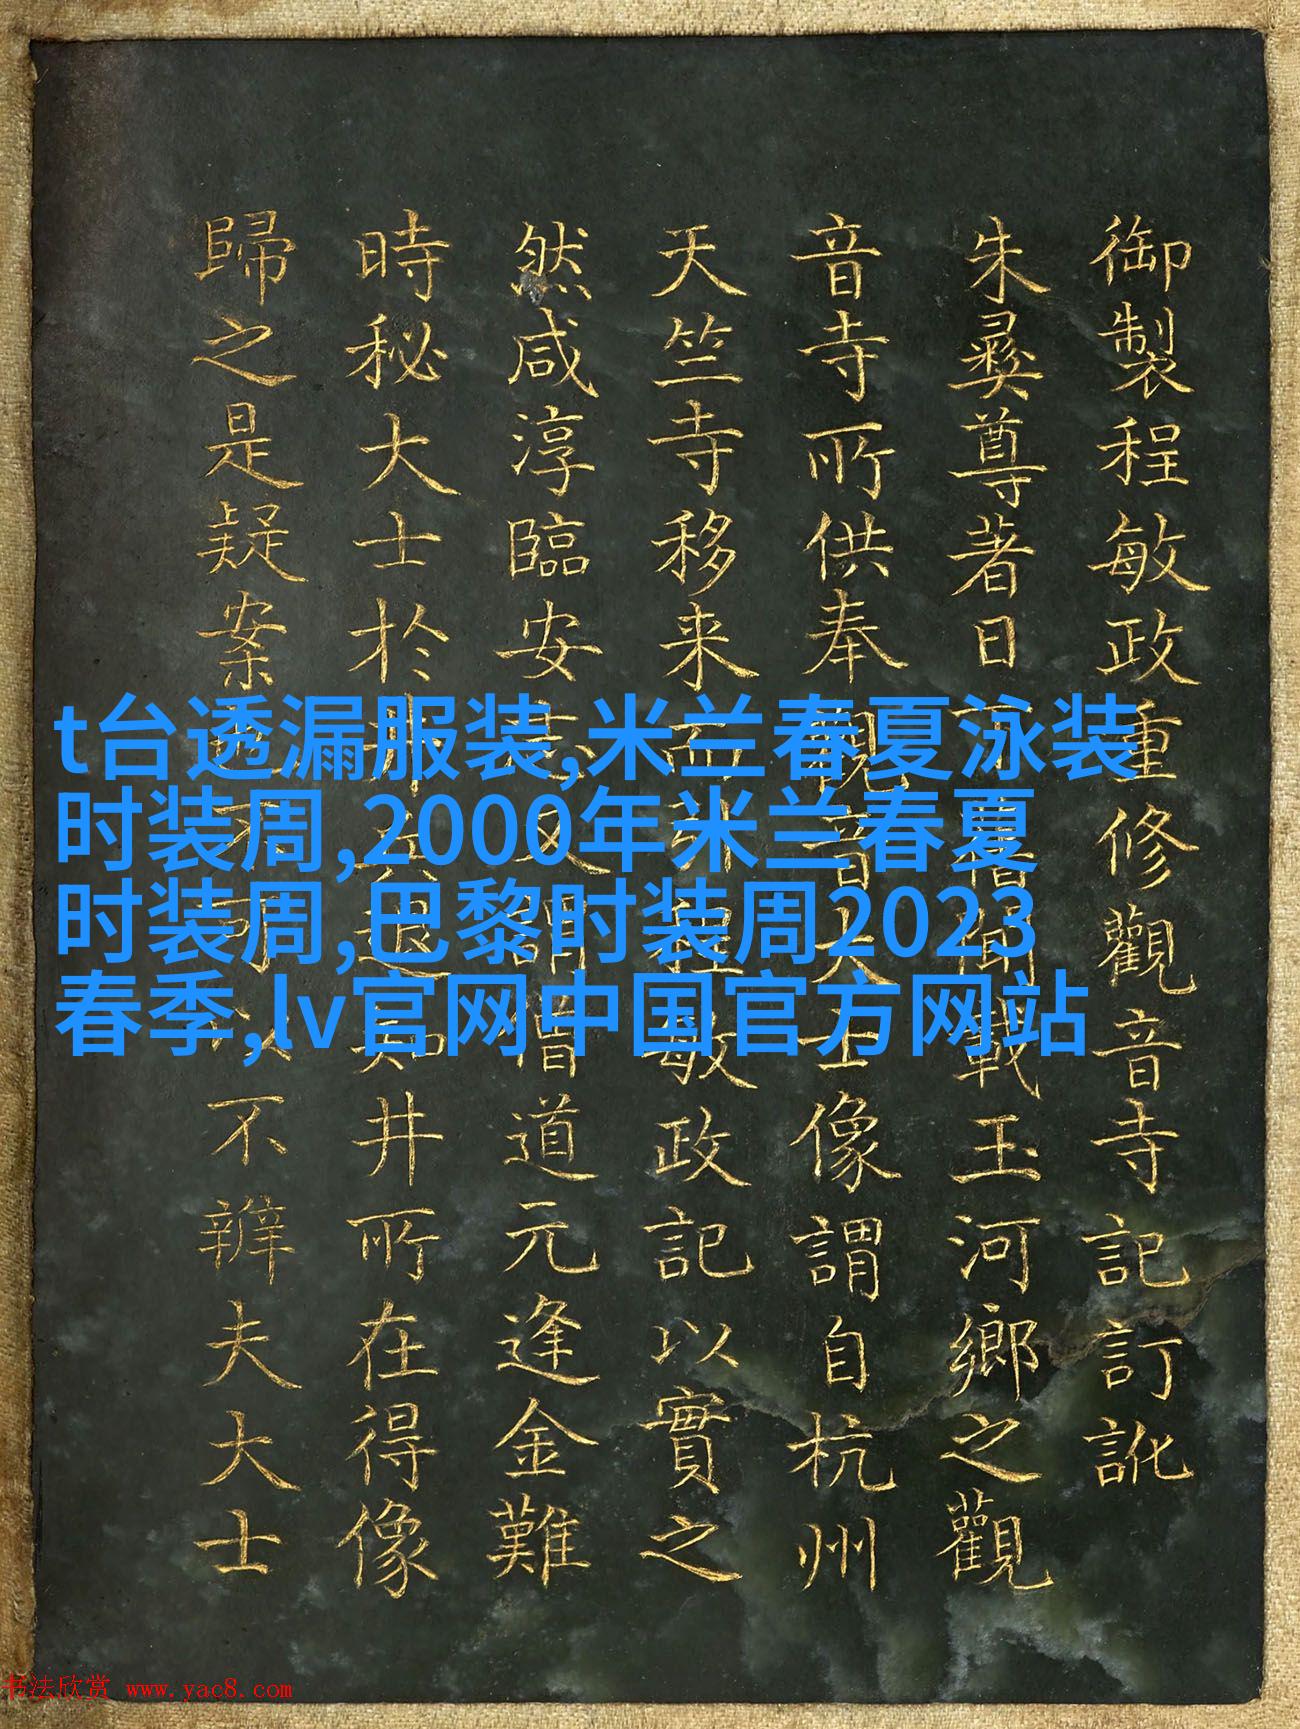 御製程敏政重修觀音寺記訂訛
朱彞尊著日下舊聞載玉河鄉之觀
音寺所供奉觀音大士像謂自杭州
天竺寺移来而非程敏政記以實之
然咸淳臨安志又僧道元逢金難
時秘大士於井兵退即井所在得像
歸之是疑案不辨夫大士
t台透漏服装,米兰春夏泳装
时装周,2000年米兰春夏
时装周,巴黎时装周2023
春季,lv官网中国官方网站
书法欣赏 www.yac8.com